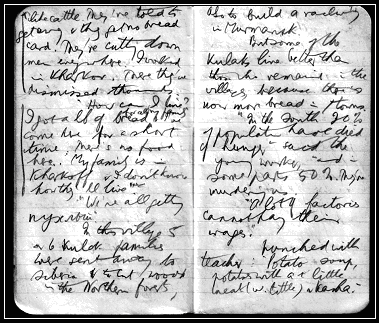 like cattle. They're told to
get away & they get no bread
card. They're cutting down
men everywhere. I worked
in Kharkov. There they've
dismissed thousands.
How can I live?
I got a lb of bread
come here for a short
time. There's no food
here. My family is in
Kharkoff & I don't know
how they'll live."
"We're all getting
In this valley 5
or 6 Kulak families
were sent away to
Siberia & to cut wood
in the Northern forests,
also to build a
in Murmansk.
But some of the
Kulaks live better than
those who remained in the
village, because there is
now more bread in towns.
"In the South 20%
of population have died
of hunger" said the
young worker, "and in
some parts 50%. They're
murdering us.
"A lot of factories
cannot pay their
wages."
Lunched with
teacher: Potato soup,
potatoes with a little
meat (v. little) & kasha.